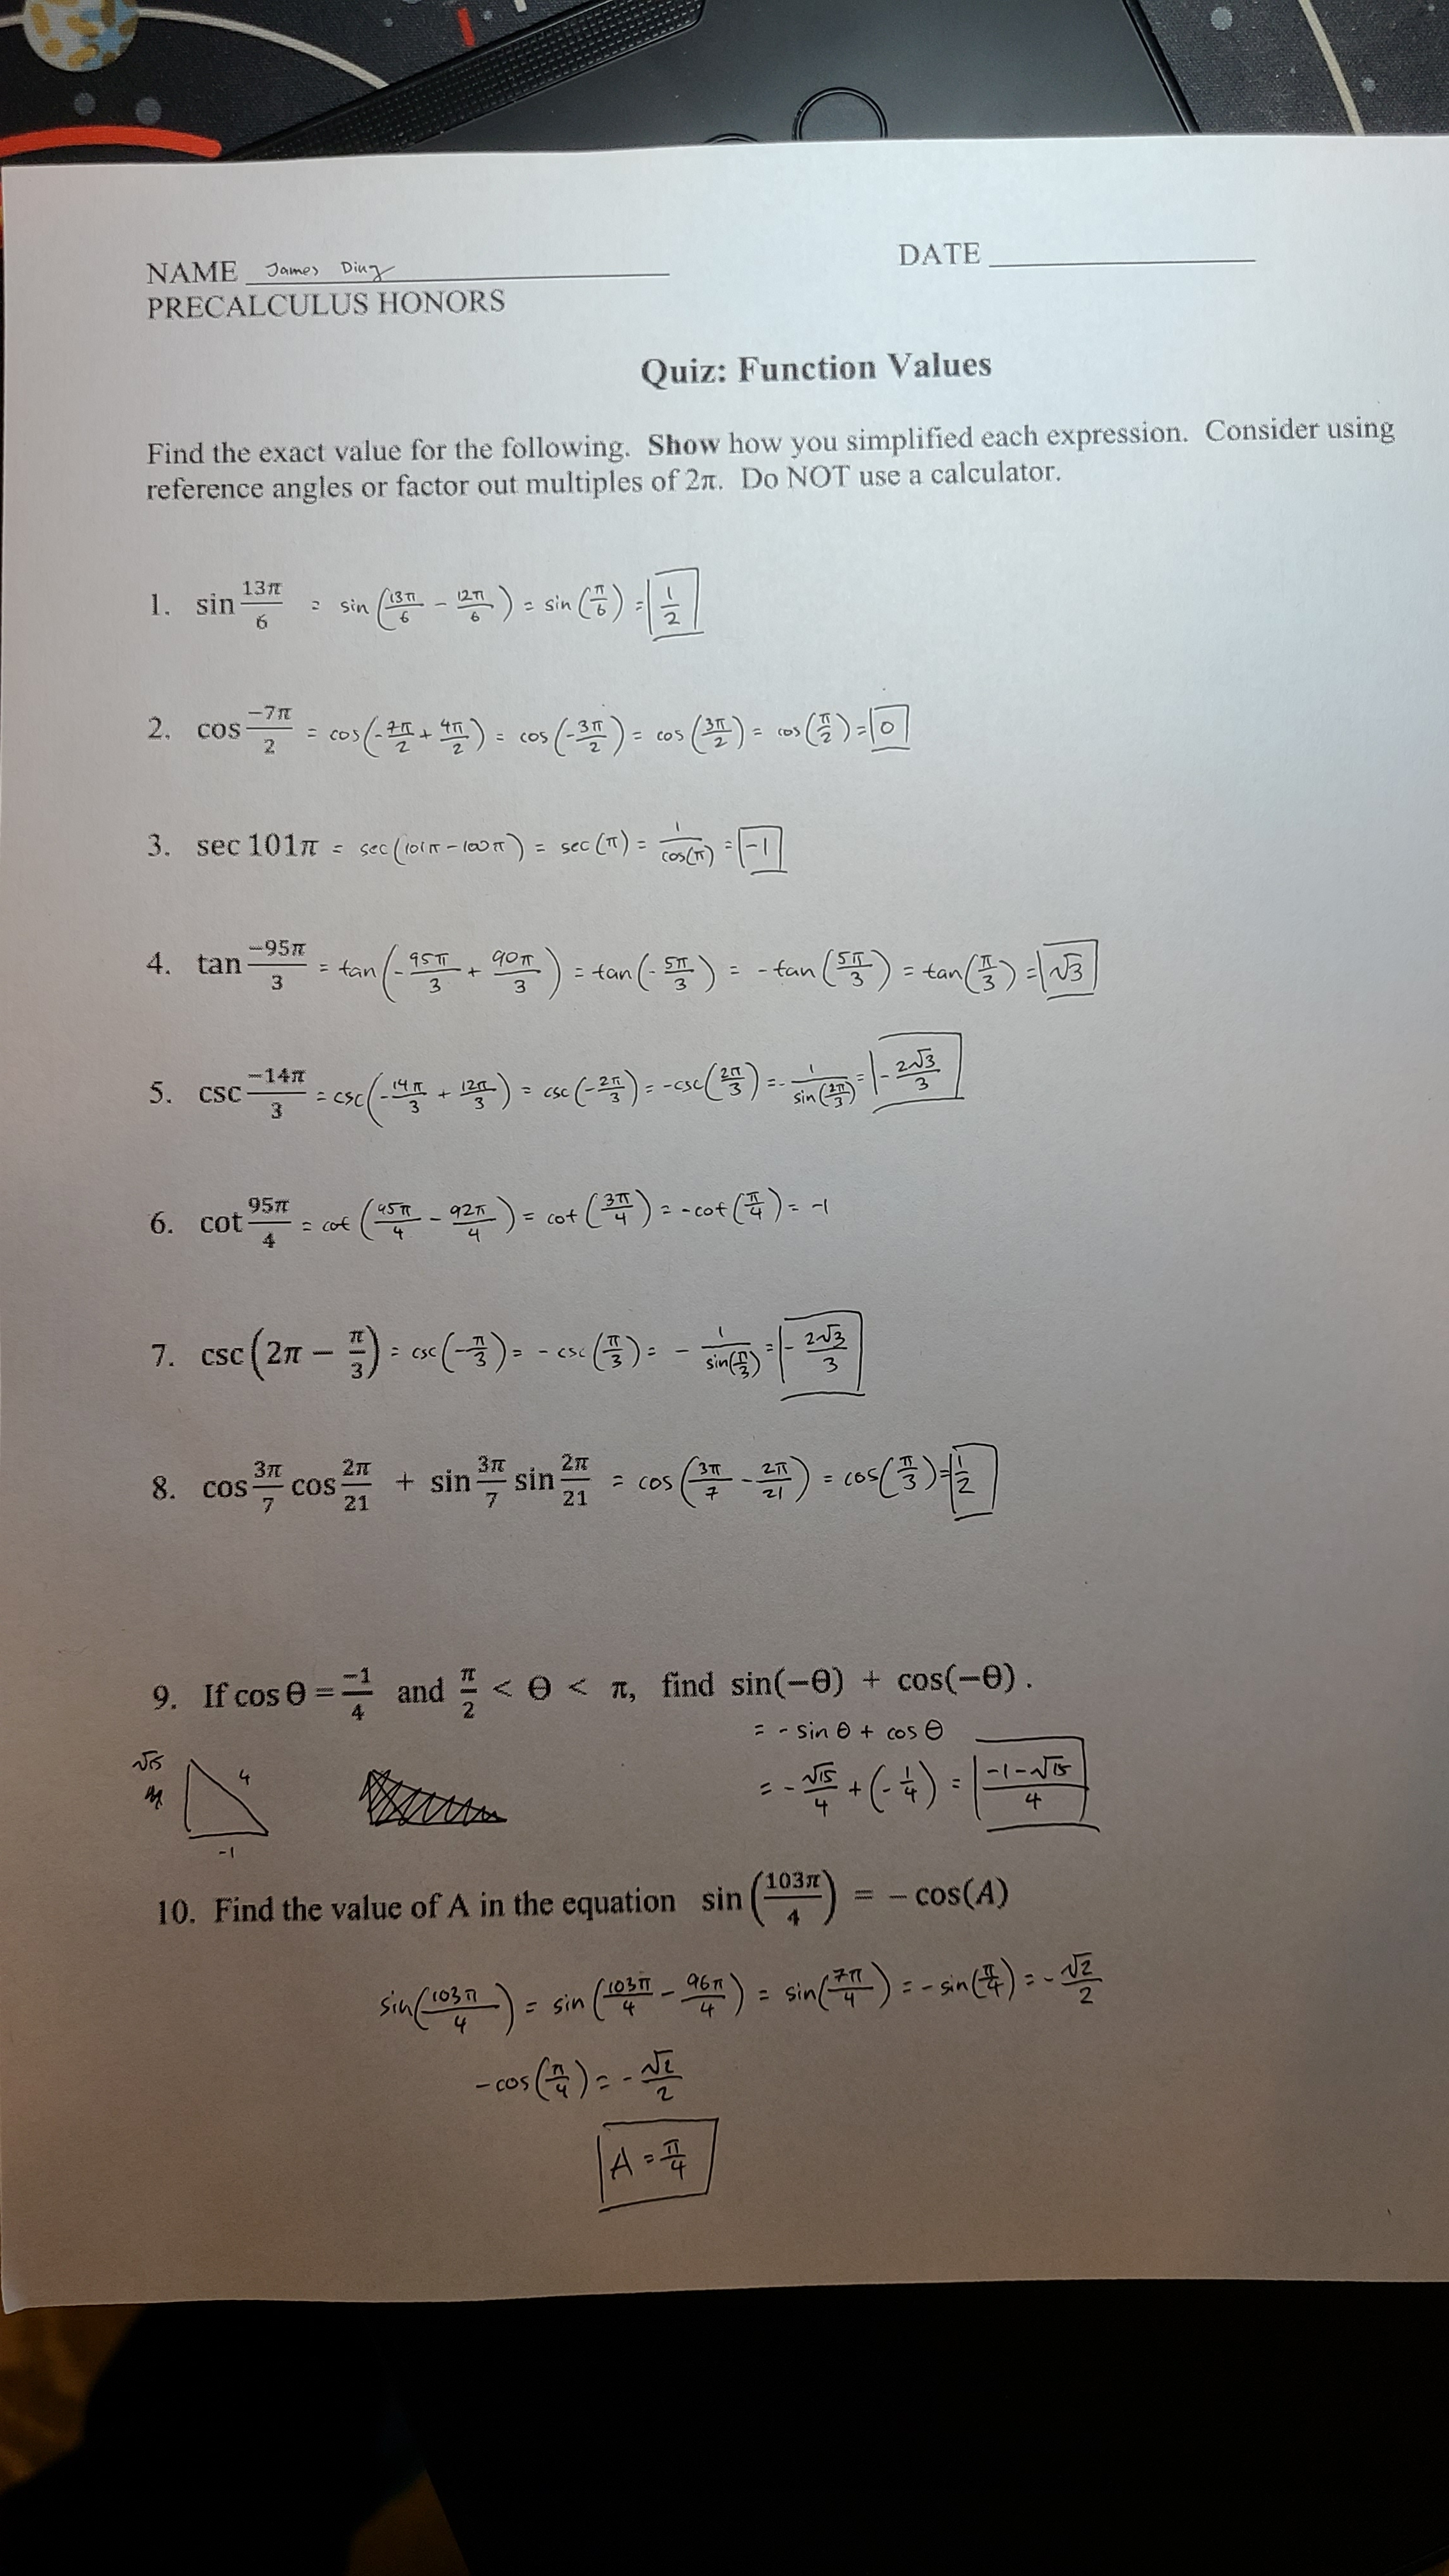 NAME James Ding
DATE
PRECALCULUS HONORS
Quiz: Function Values
Find the exact value for the following. Show how you simplified each expression. Consider using
reference angles or factor out multiples of 2π. Do NOT use a calculator.
1. sin 13π/6 = sin(13π/6 - 12π/6) = sin(π/6) = 1/2
2. cos −7π/2 = cos(-7π/2 + 4π/2) = cos(-3π/2) = cos(3π/2) = cos(π/2) = 0
3. sec 101π = sec(101π-100π) = sec(π) = 1/cos(π) = -1
4. tan −95π/3 = tan(-95π/3 + 90π/3) = tan(-5π/3) = -tan(5π/3) = tan(π/3) = √3
5. csc −14π/3 = csc(-14π/3 + 12π/3) = csc(-2π/3) = -csc(2π/3) = -1/sin(2π/3) = -2√3/3
6. cot 95π/4 = cot(95π/4 - 92π/4) = cot(3π/4) = -cot(π/4) = -1
7. csc(2π − π/3) = csc(-π/3) = -csc(π/3) = -1/sin(π/3) = -2√3/3
8. cos 3π/7 cos 2π/21 + sin 3π/7 sin 2π/21 = cos(3π/7 - 2π/21) = cos(π/3) = 1/2
9. If cos θ = −1/4 and π/2 < θ < π, find sin(−θ) + cos(−θ).
= -sin θ + cos θ
√15 4 -1
= -√15/4 + (-1/4) = -1-√15/4
10. Find the value of A in the equation sin(103π/4) = − cos(A)
sin(103π/4) = sin(103π/4 - 96π/4) = sin(7π/4) = -sin(π/4) = -√2/2
-cos(π/4) = -√2/2
A = π/4